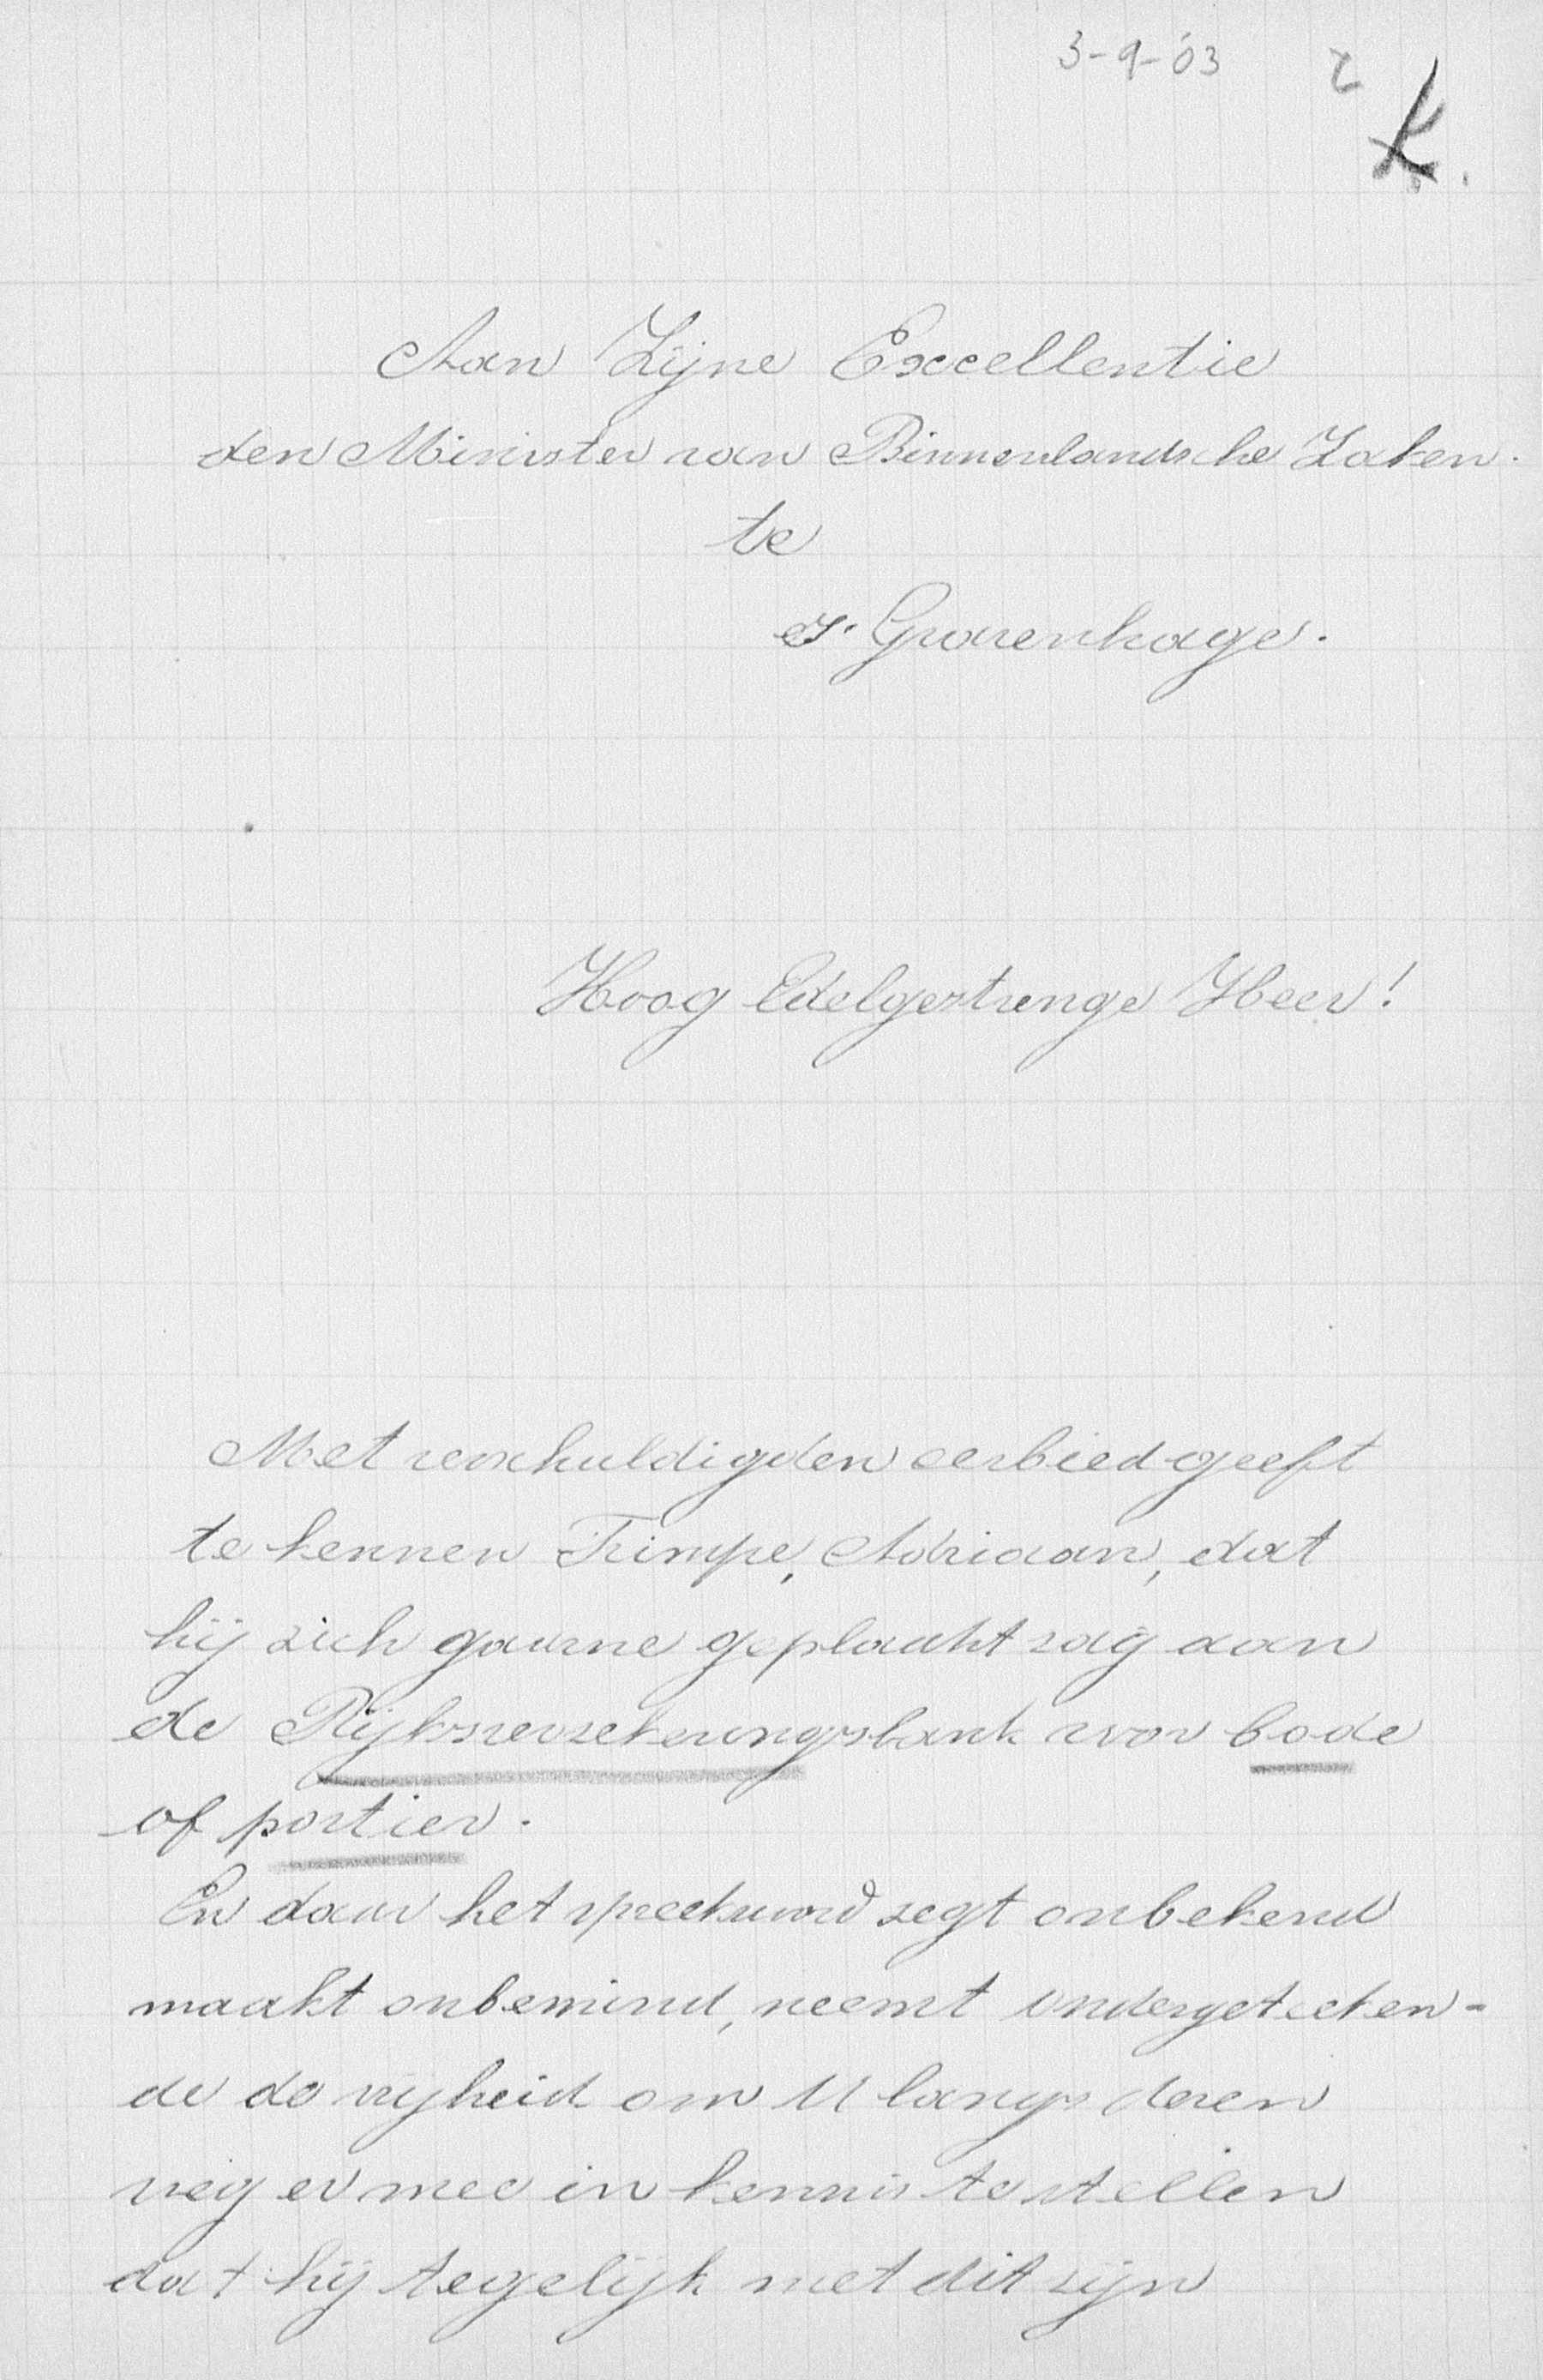 3-9-'03
K.
Aan Zijne Excellentie
den Minister van Binnenlandsche Zaken.
te
's Gravenhage.
Hoog Edelgestrenge Heer!
Met verschuldigden eerbied geeft
te kennen Trimpe, Adriaan, dat
hij zich gaarne geplaatst zag aan
de Rijksverzekeringsbank voor bode
of portier.
En daar het spreekwoord zegt onbekend
maakt onbemind, neemt ondergeteeken-
de de vrijheid om U langs dezen
weg er mee in kennis te stellen
dat hij tegelijk met dit zijn